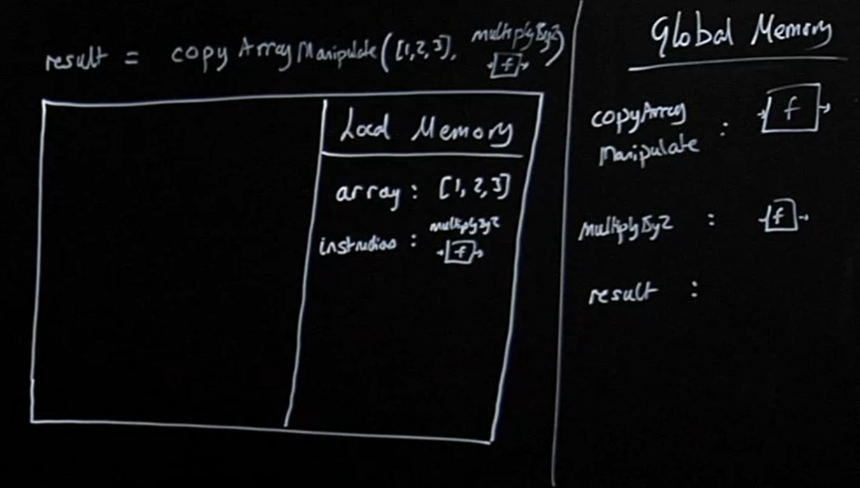 result = copy Array Manipulate([1,2,3], multiplyBy2)
f
Local Memory
array : [1, 2, 3]
instruction : multiplyBy2
f
Global Memory
copyArray
Manipulate : f
multiplyBy2 : f
result :